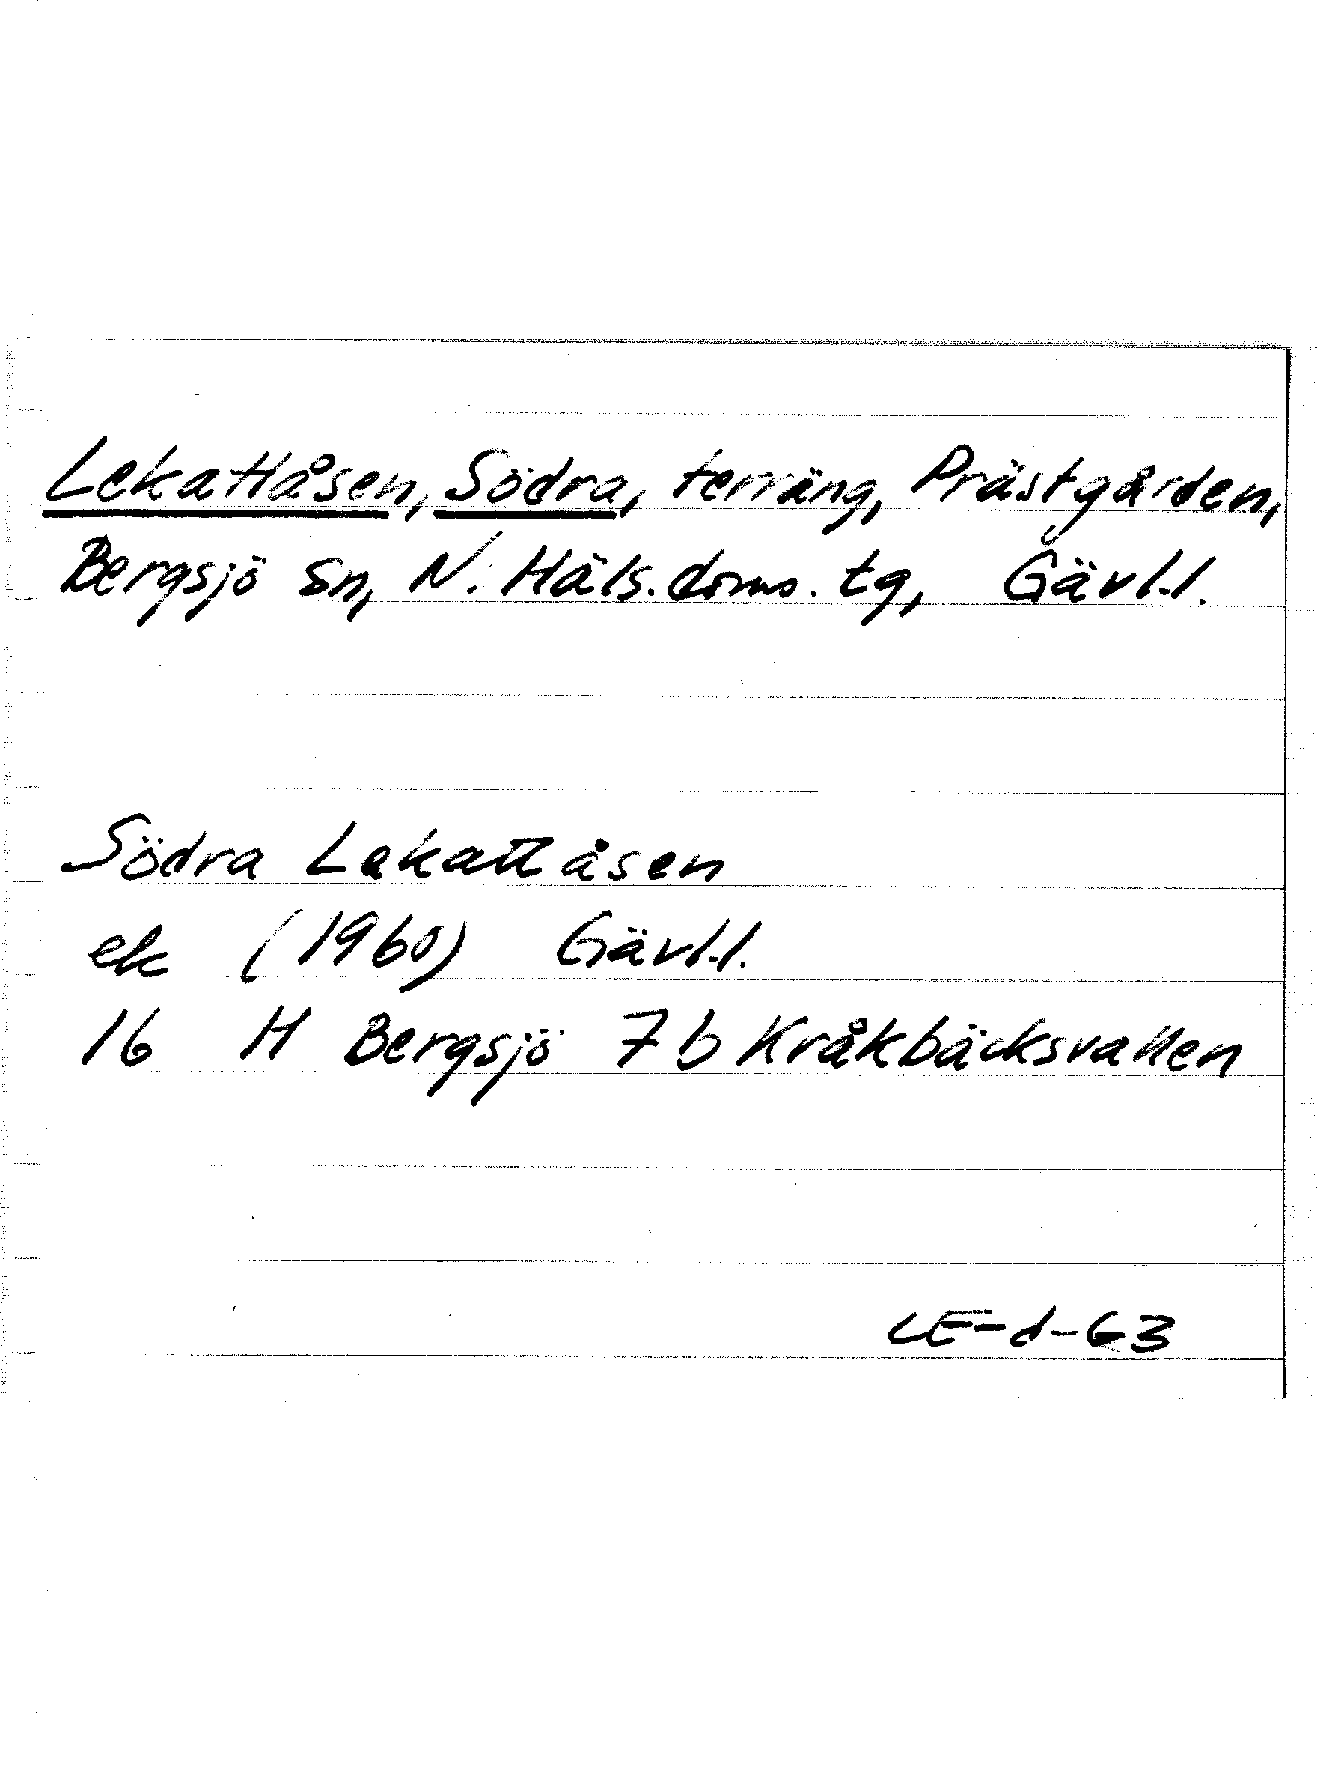 Lekattåsen, Södra, terräng, Prästgården,
Bergsjö sn, N. Häls. doms. tg, Gävl.l.
Södra Lekattåsen
ek (1960) Gävl.l.
16 H Bergsjö 7b Kråkbäcksvallen
LE-d-63